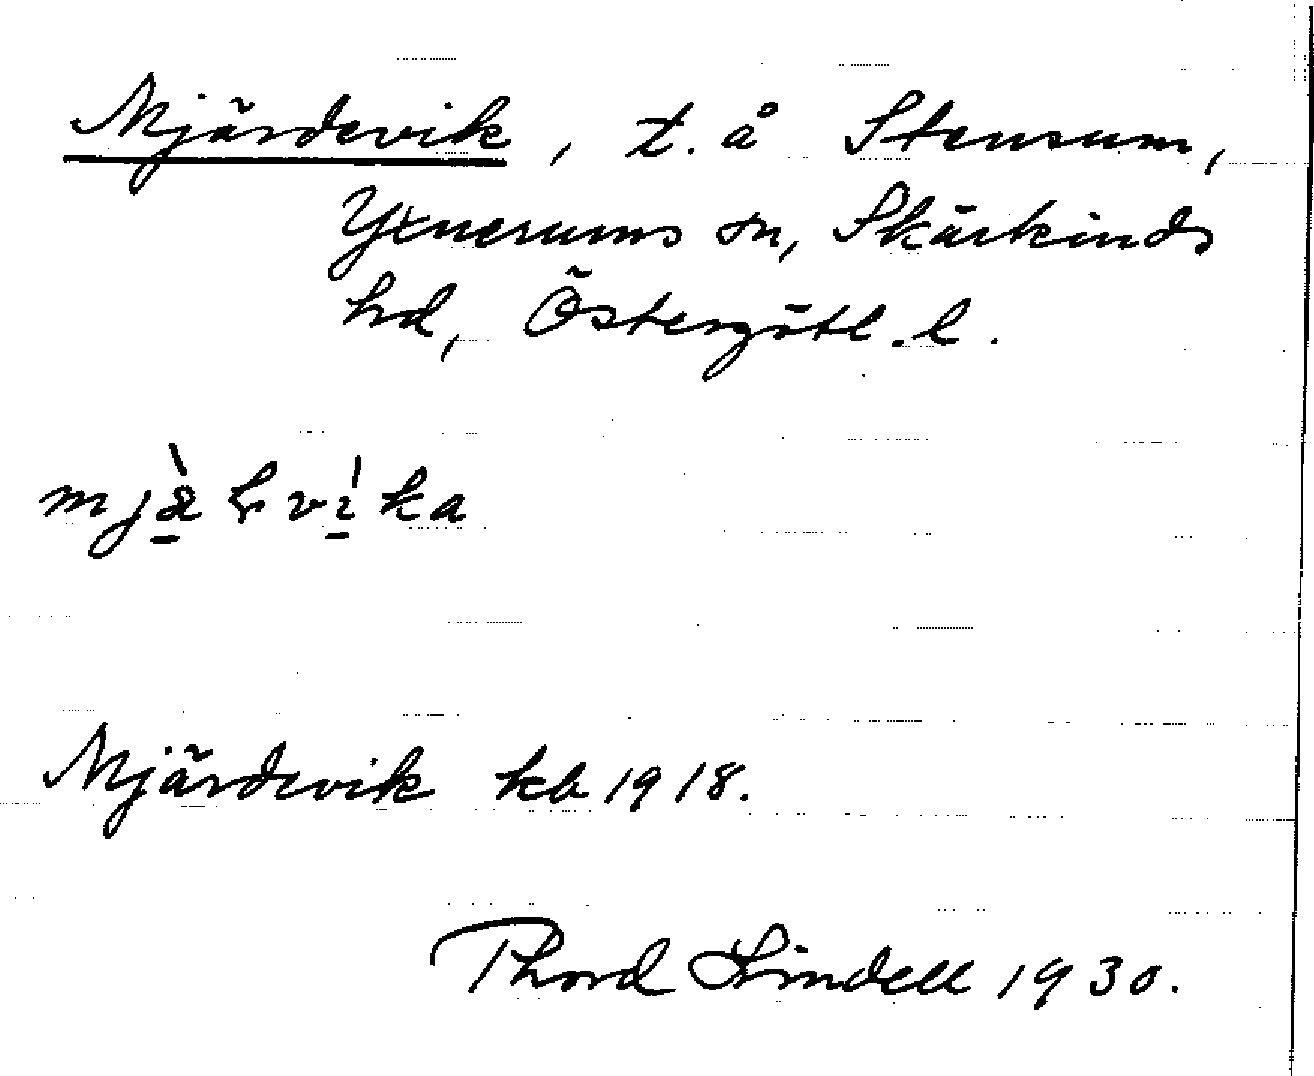 Mjärdevik, t. å Stensum,
Yxnerums sn, Skärkinds
hd, Östergötl. l.
Mjärdevik kb 1918.
Thord Lindell 1930.